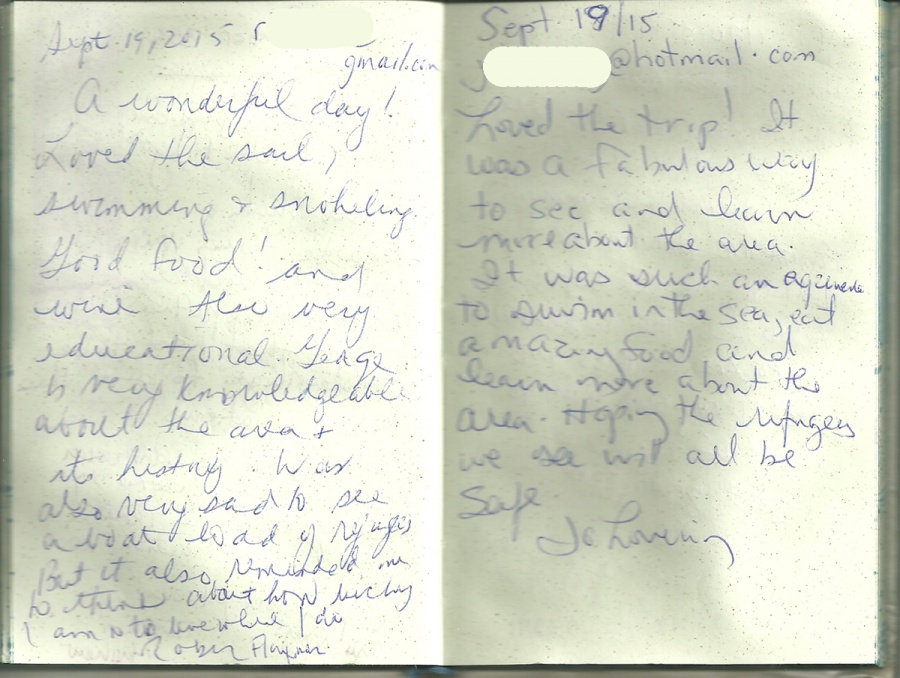 Sept. 19, 2015
gmail.com
A wonderful day!
Loved the sail,
swimming & snorkeling.
Good food! and
wine Also very
educational. George
is very knowledgeable
about the area &
its history. Was
also very sad to see
a boat load of refugees
But it also reminded me
to think about how lucky
I am to live where I do
Robin
Sept 19/15
@hotmail.com
Loved the trip! It
was a fabulous way
to see and learn
more about the area.
It was such an experience
to swim in the sea, eat
amazing food and
learn more about the
area. Hoping the refugees
we see will all be
Safe
Jo Lovering